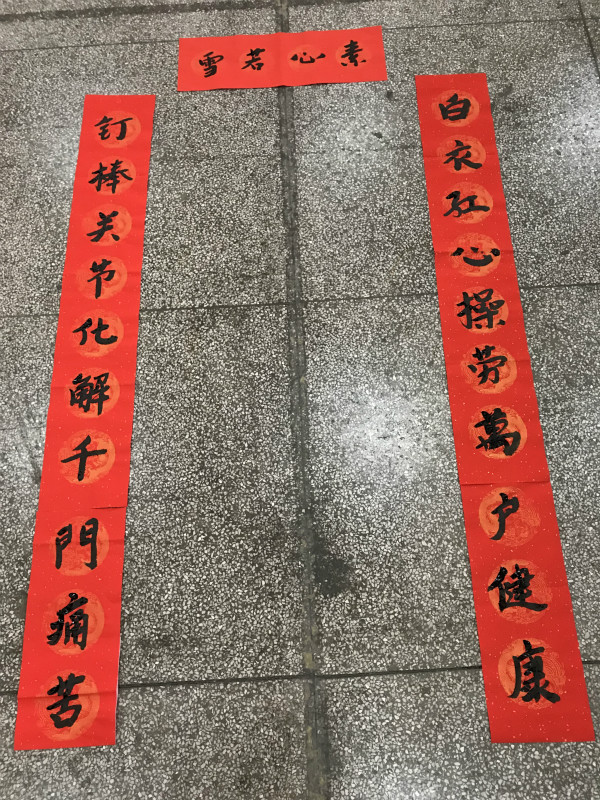 素心若雪
白衣红心操劳萬户健康
钉棒关节化解千門痛苦